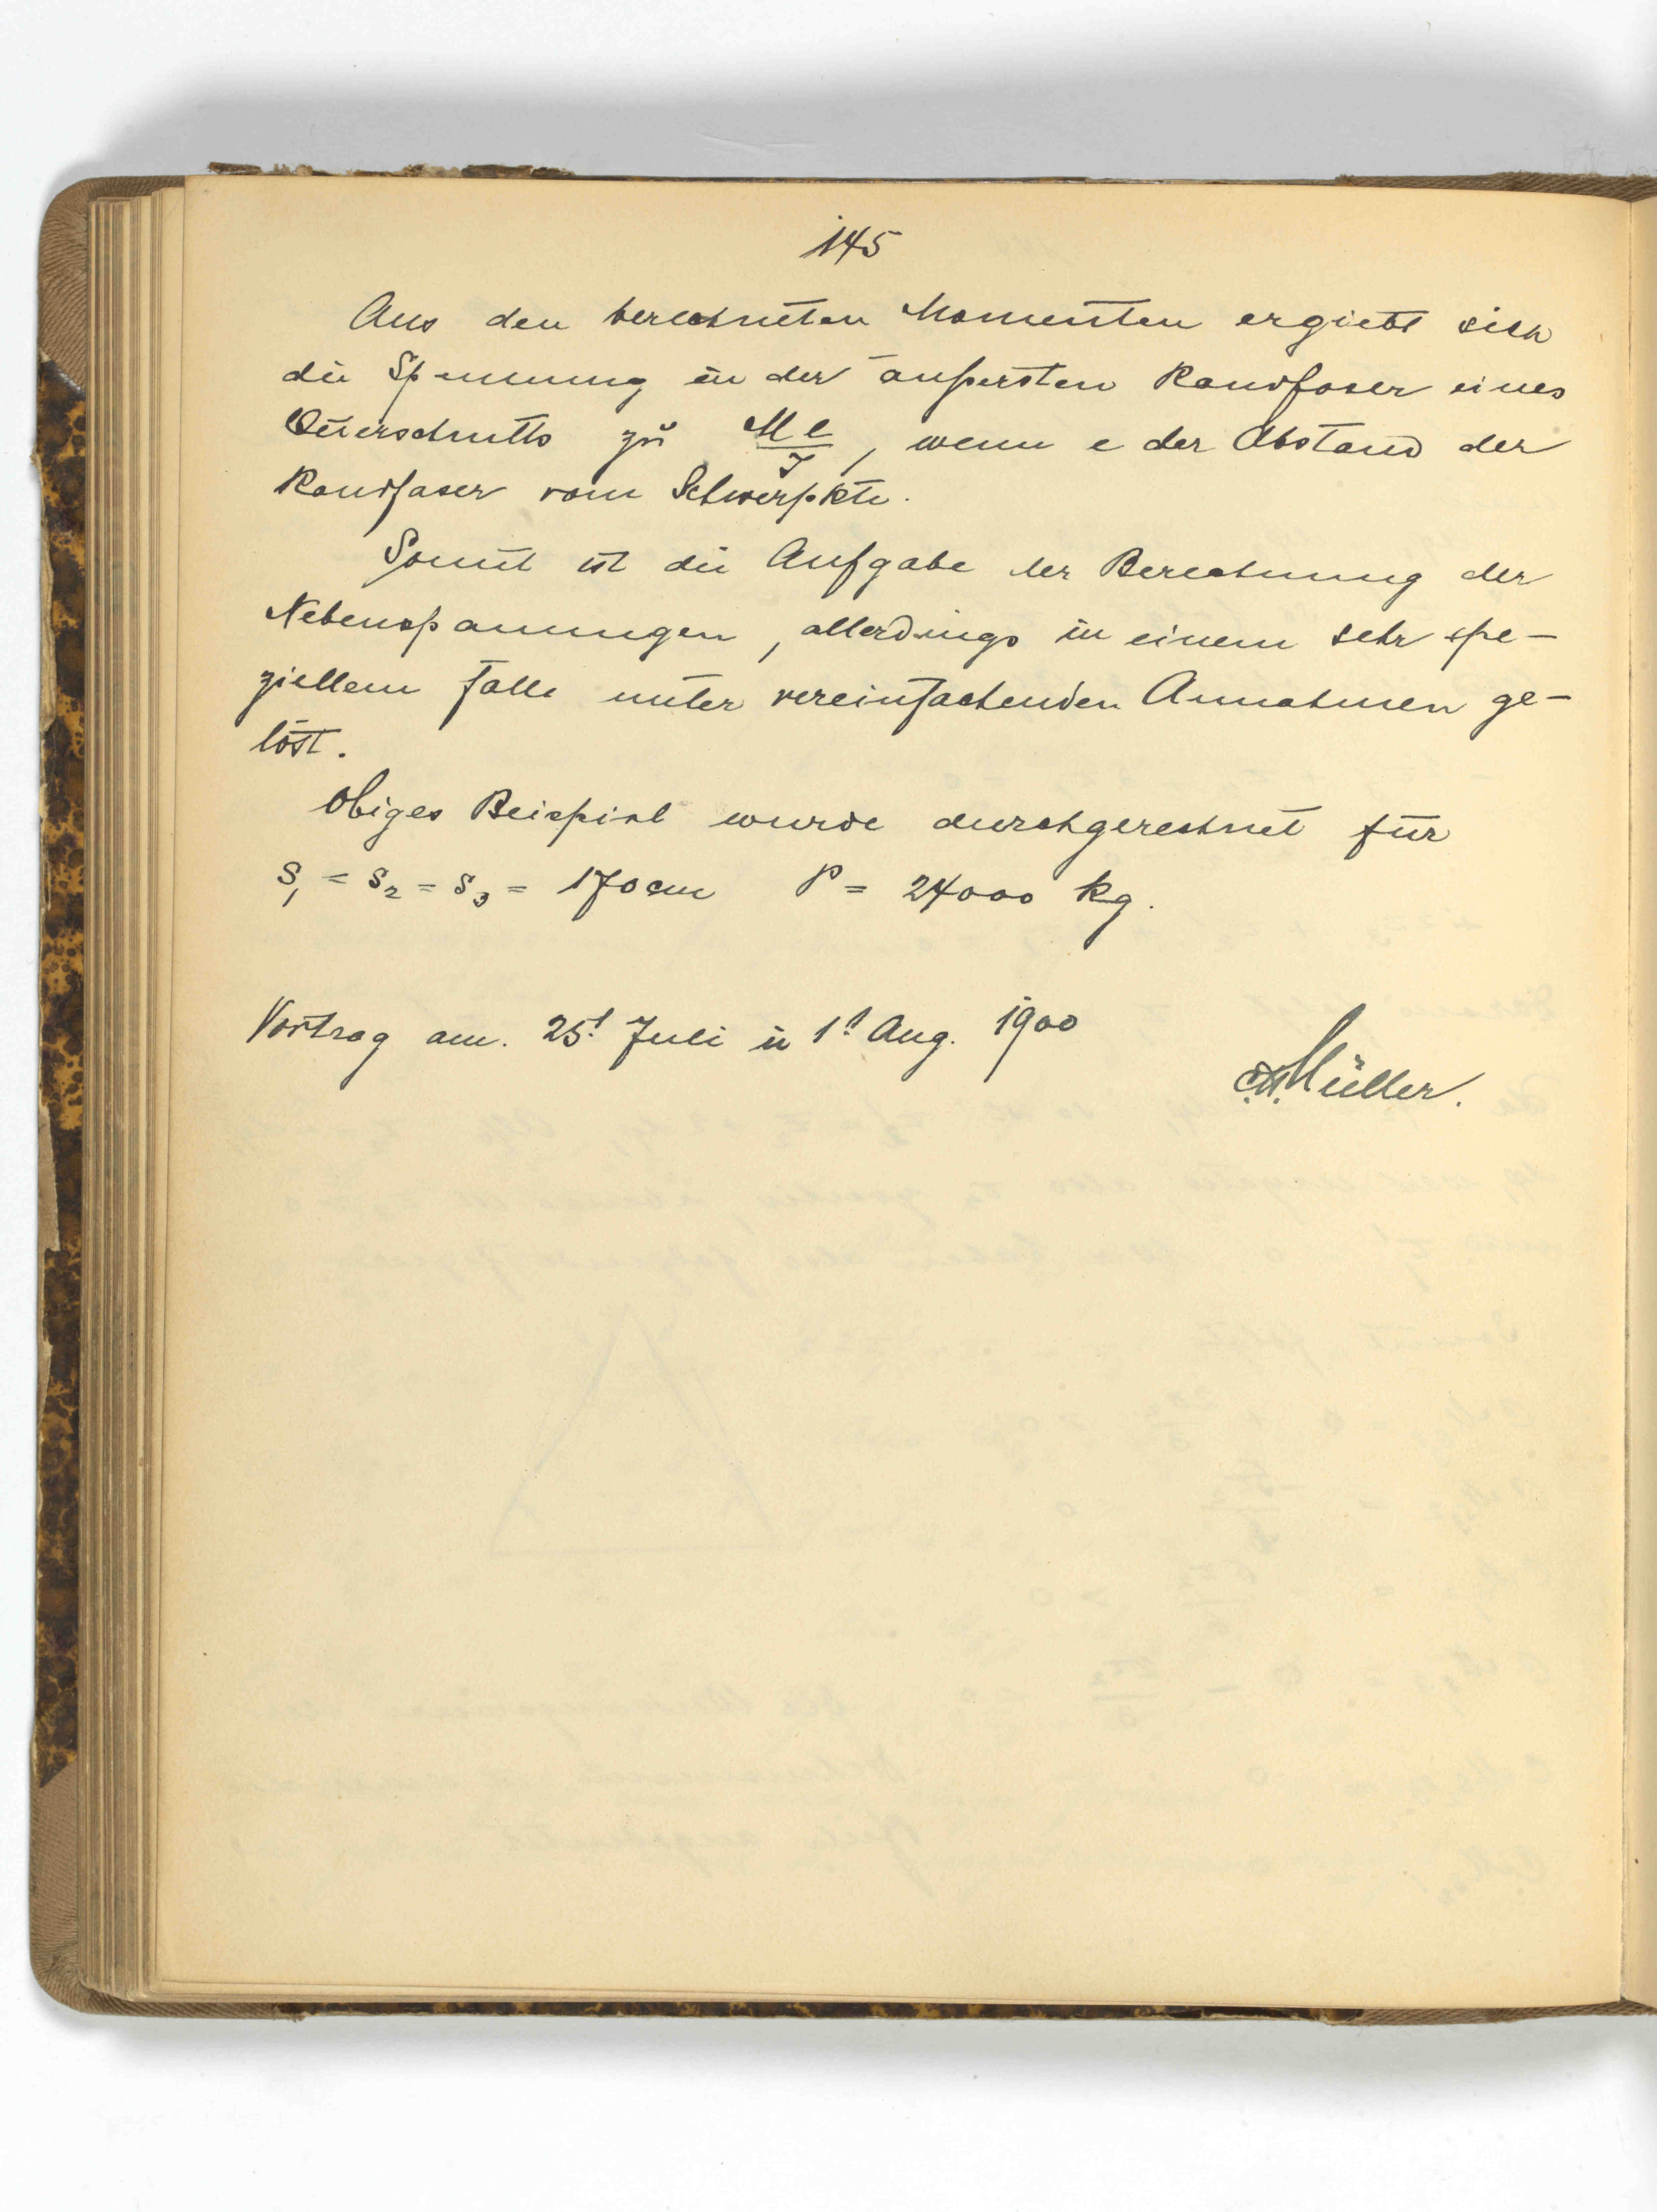 145
Aus den berechneten Momenten ergiebt sich
die Spannung in der äußersten Randfaser eines
Querschnitts zu \frac{M e}{J}, wenn e der Abstand der
Randfaser vom Schwerpkte.
Somit ist die Aufgabe der Berechnung der
Nebenspannungen, allerdings in einem sehr spe-
ziellem Falle unter vereinfachenden Annahmen ge-
löst.
Obiges Beispiel wurde durchgerechnet für
s₁ = s₂ = s₃ = 170 cm P = 24000 kg.
Vortrag am. 25t Juli u 1t Aug. 1900
Müller.